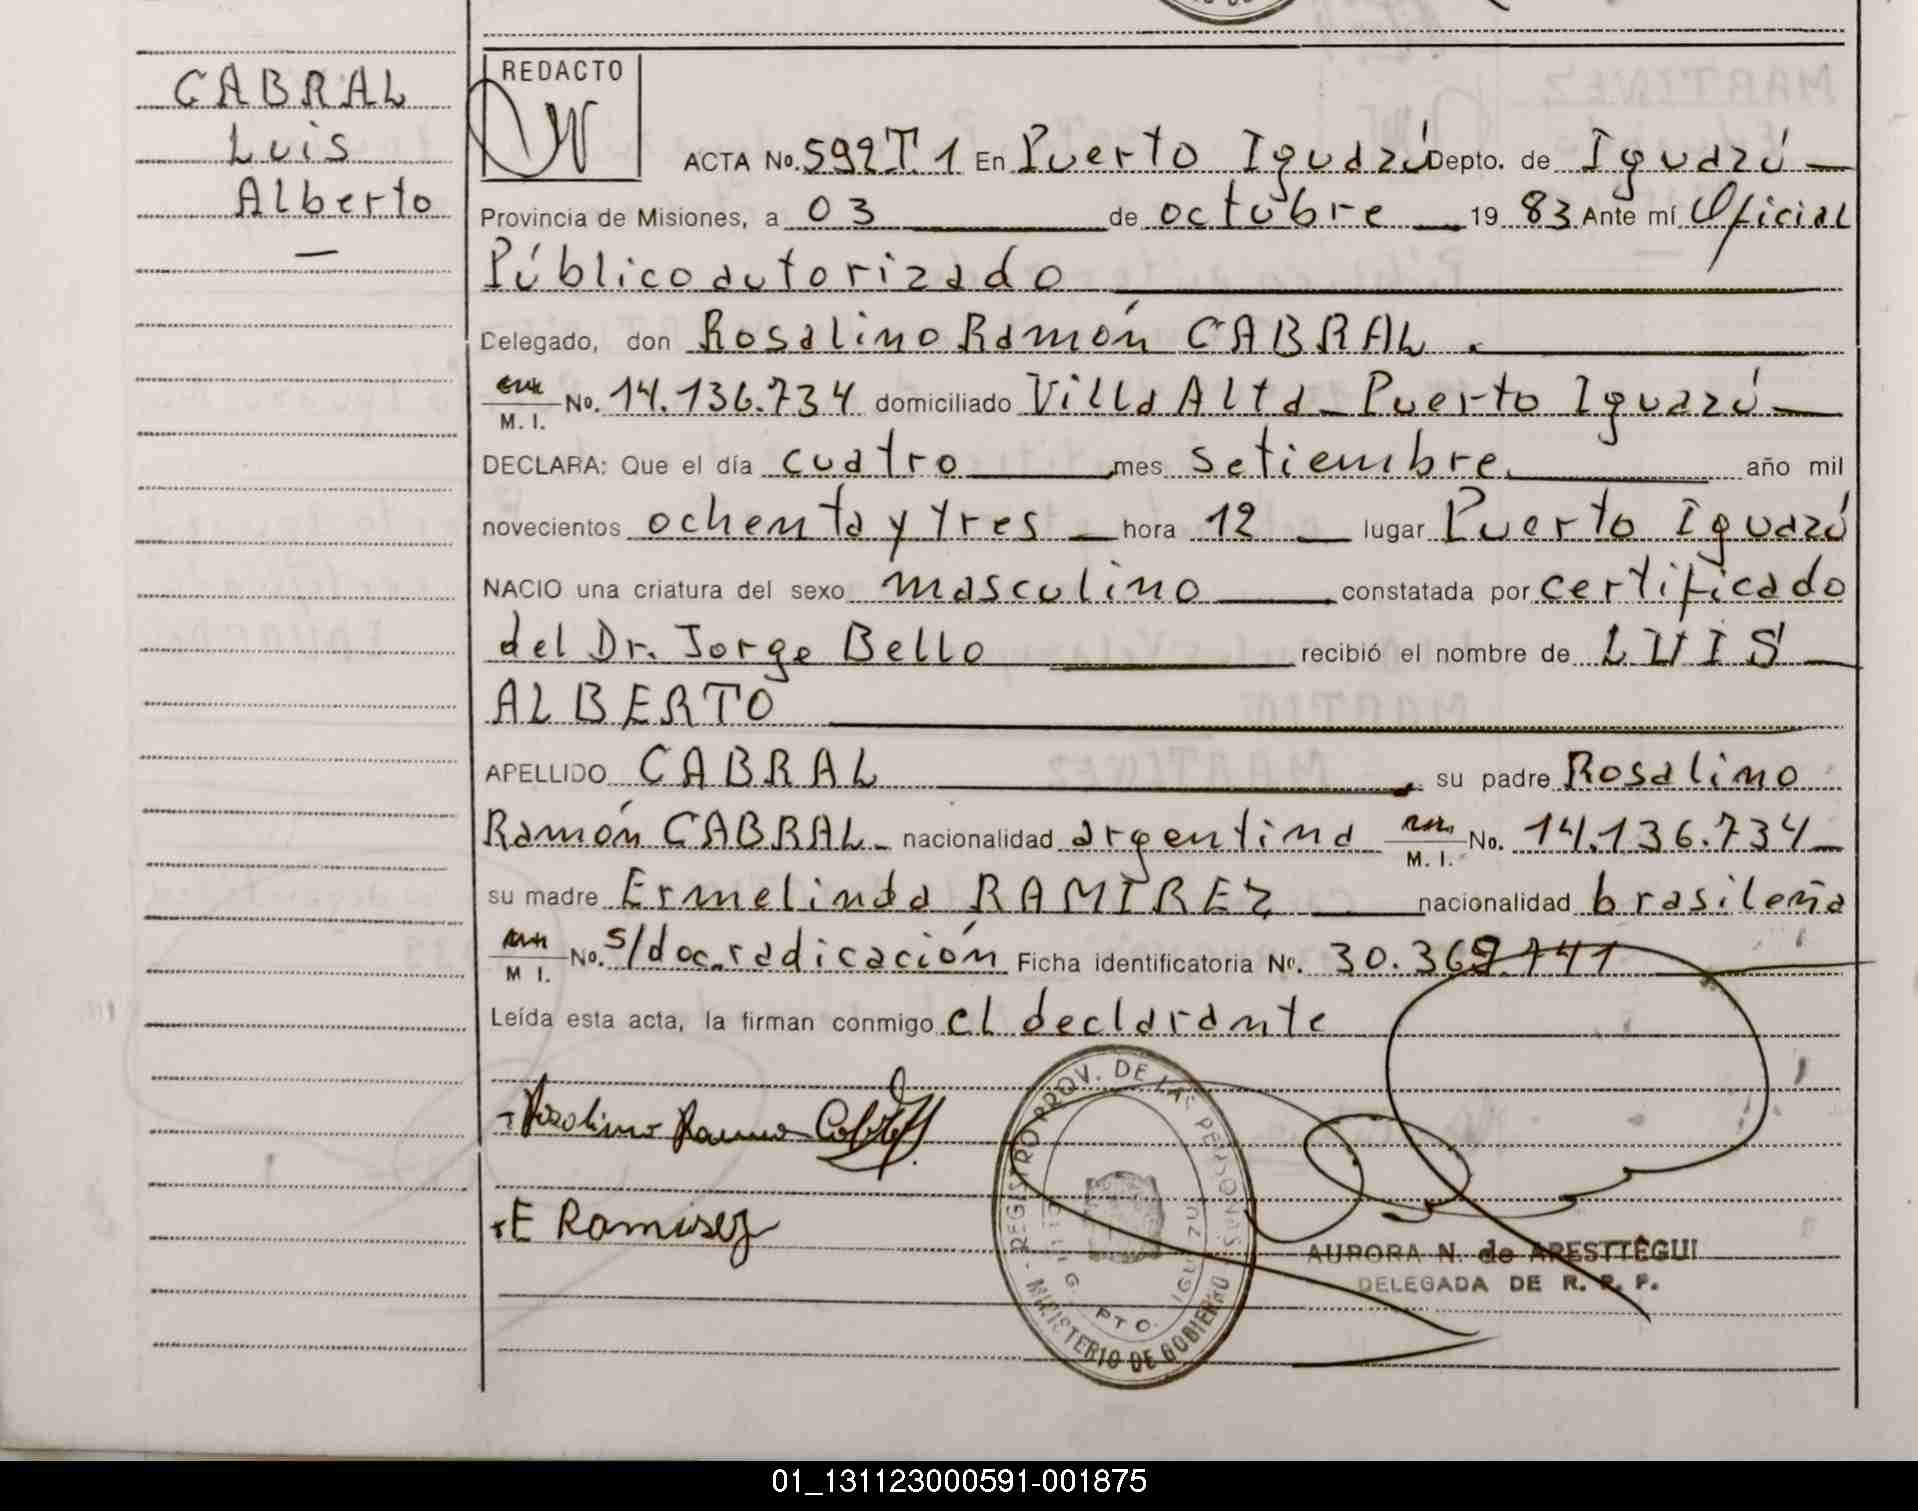 CABRAL
Luis
Alberto
—
REDACTO
ACTA No. 592 T. 1 En Puerto Iguazú Depto. de Iguazú —
Provincia de Misiones, a 03 de octubre — 19 83 Ante mí Oficial
Público autorizado
Delegado, don Rosalino Ramón CABRAL.
M. I. No. 14.136.734 domiciliado Villa Alta - Puerto Iguazú —
DECLARA: Que el día cuatro mes setiembre. año mil
novecientos ochenta y tres — hora 12 — lugar Puerto Iguazú
NACIO una criatura del sexo masculino constatada por certificado
del Dr. Jorge Bello recibió el nombre de LUIS
ALBERTO
APELLIDO CABRAL, su padre Rosalino
Ramón CABRAL - nacionalidad argentina M. I. No. 14.136.734 —
su madre Ermelinda RAMIREZ nacionalidad brasileña
M I. No. s/doc. radicación Ficha identificatoria No. 30.369.741
Leída esta acta, la firman conmigo el declarante
Rosalino Ramon
E Ramirez
REGISTRO PROV. DE LAS PERSONAS
DELEG. PTO. IGUAZU
MINISTERIO DE GOBIERNO
AURORA N. de ARESTTEGUI
DELEGADA DE R. P. P.
01_131123000591-001875